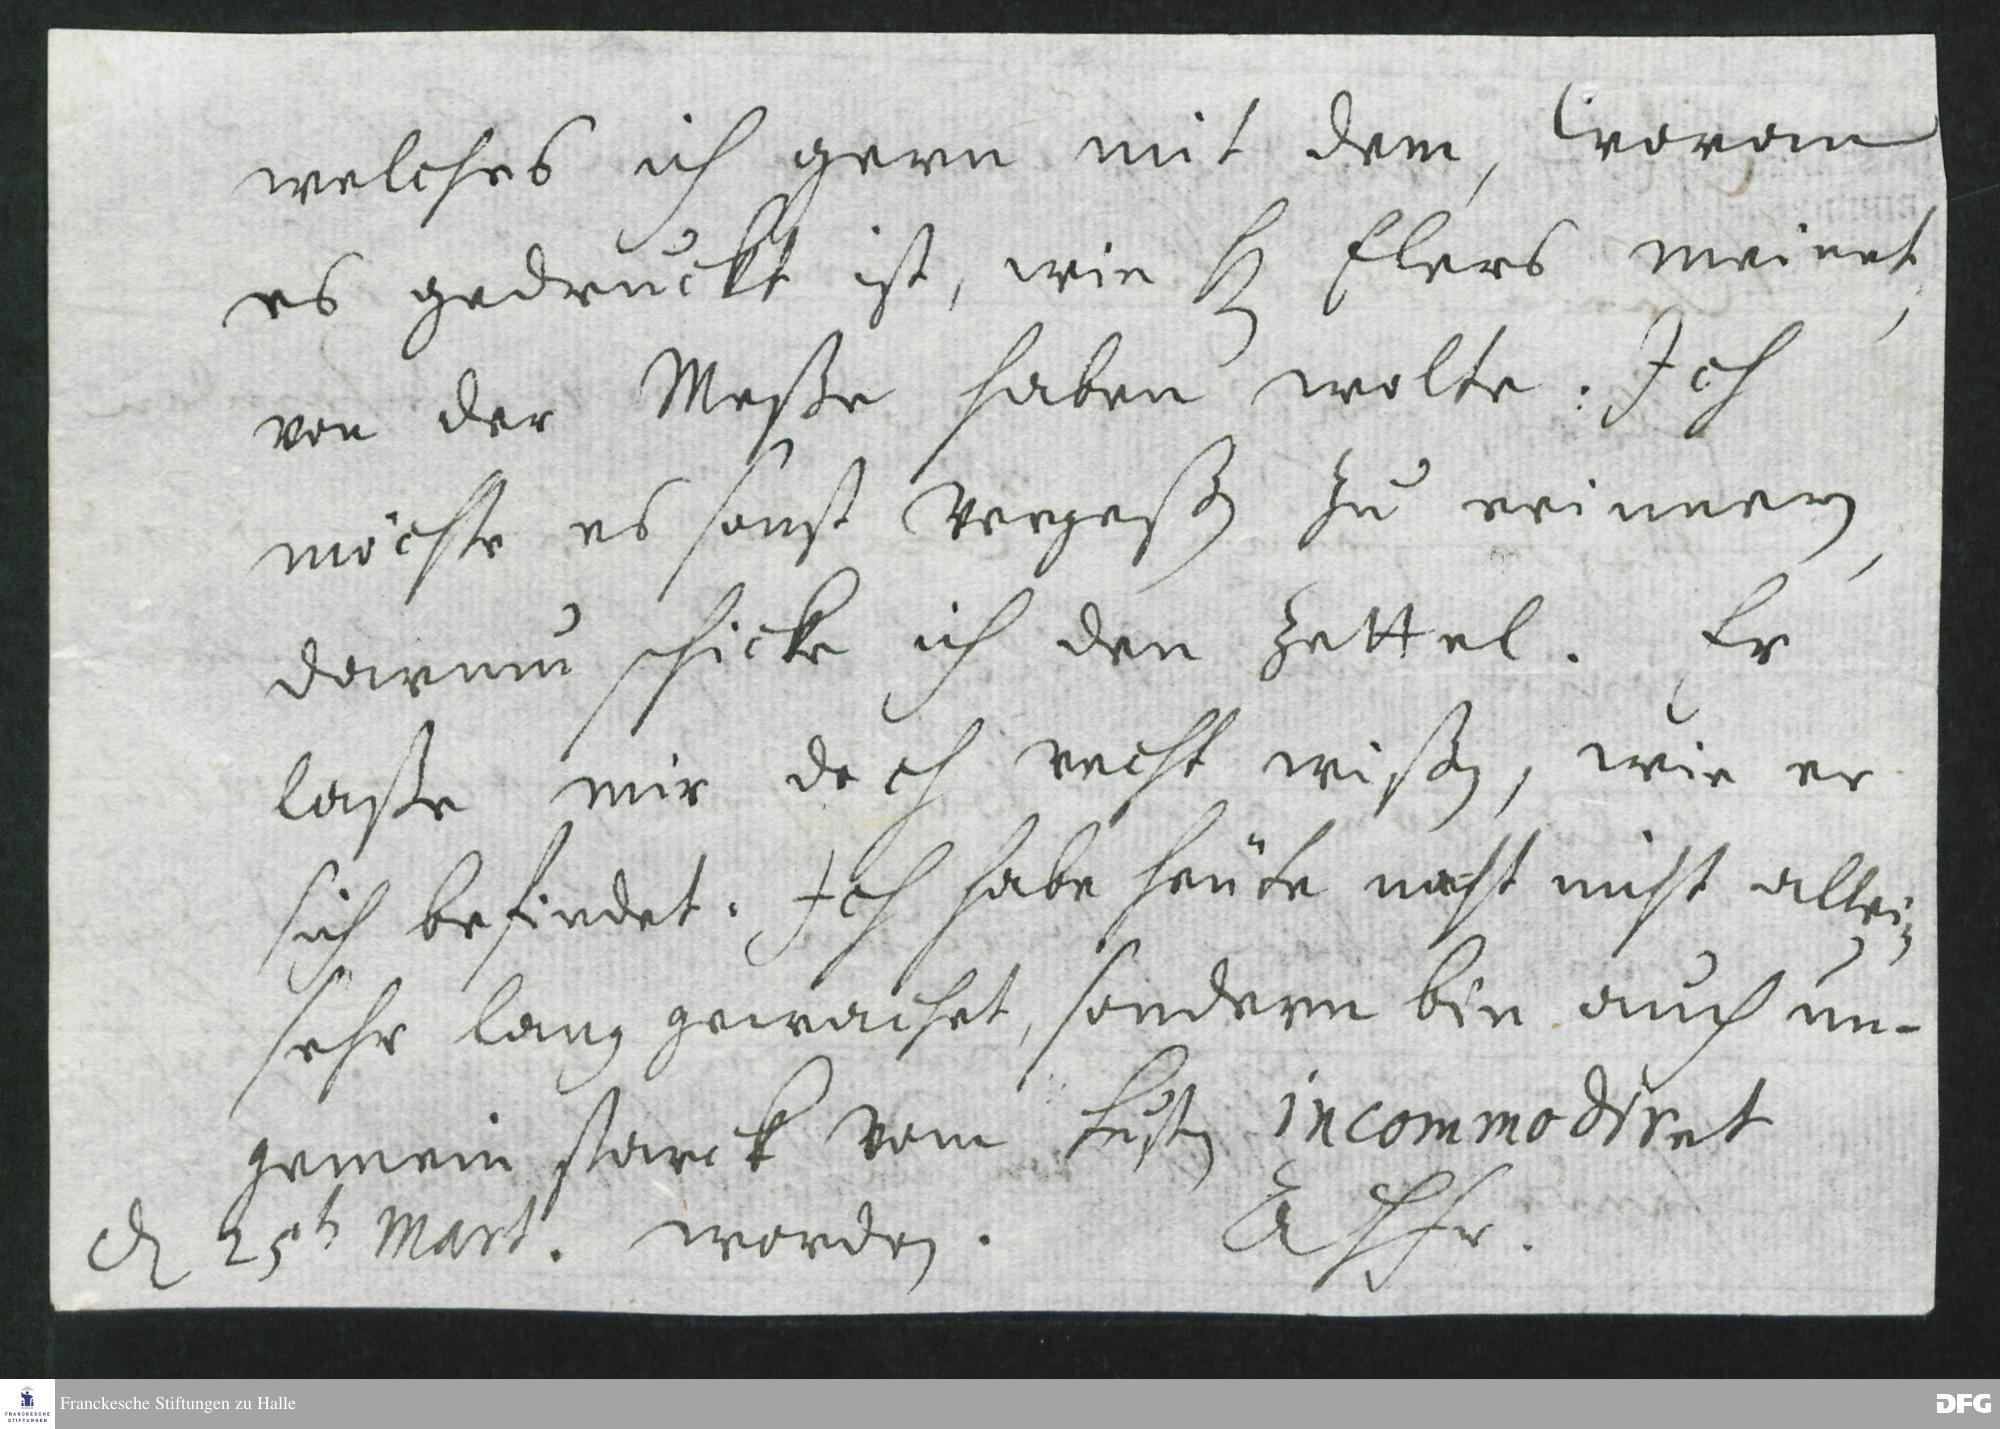 welches ich gern mit dem, woran
es gedruckt ist, wie H Elers meinet,
von der Meße haben wolte. Ich
möchte es sonst vergeßen zu erinnern,
darum schicke ich den Zettel. Er
laße mir doch recht wißen, wie er
sich befindet. Ich habe heüte nacht nicht allein
sehr lang gewachet, sondern bin auch un-
gemein starck vom Husten incommodiret
den 25ten Mart. worden. AHFr.
Franckesche Stiftungen zu Halle
FRANCKESCHE
STIFTUNGEN
DFG